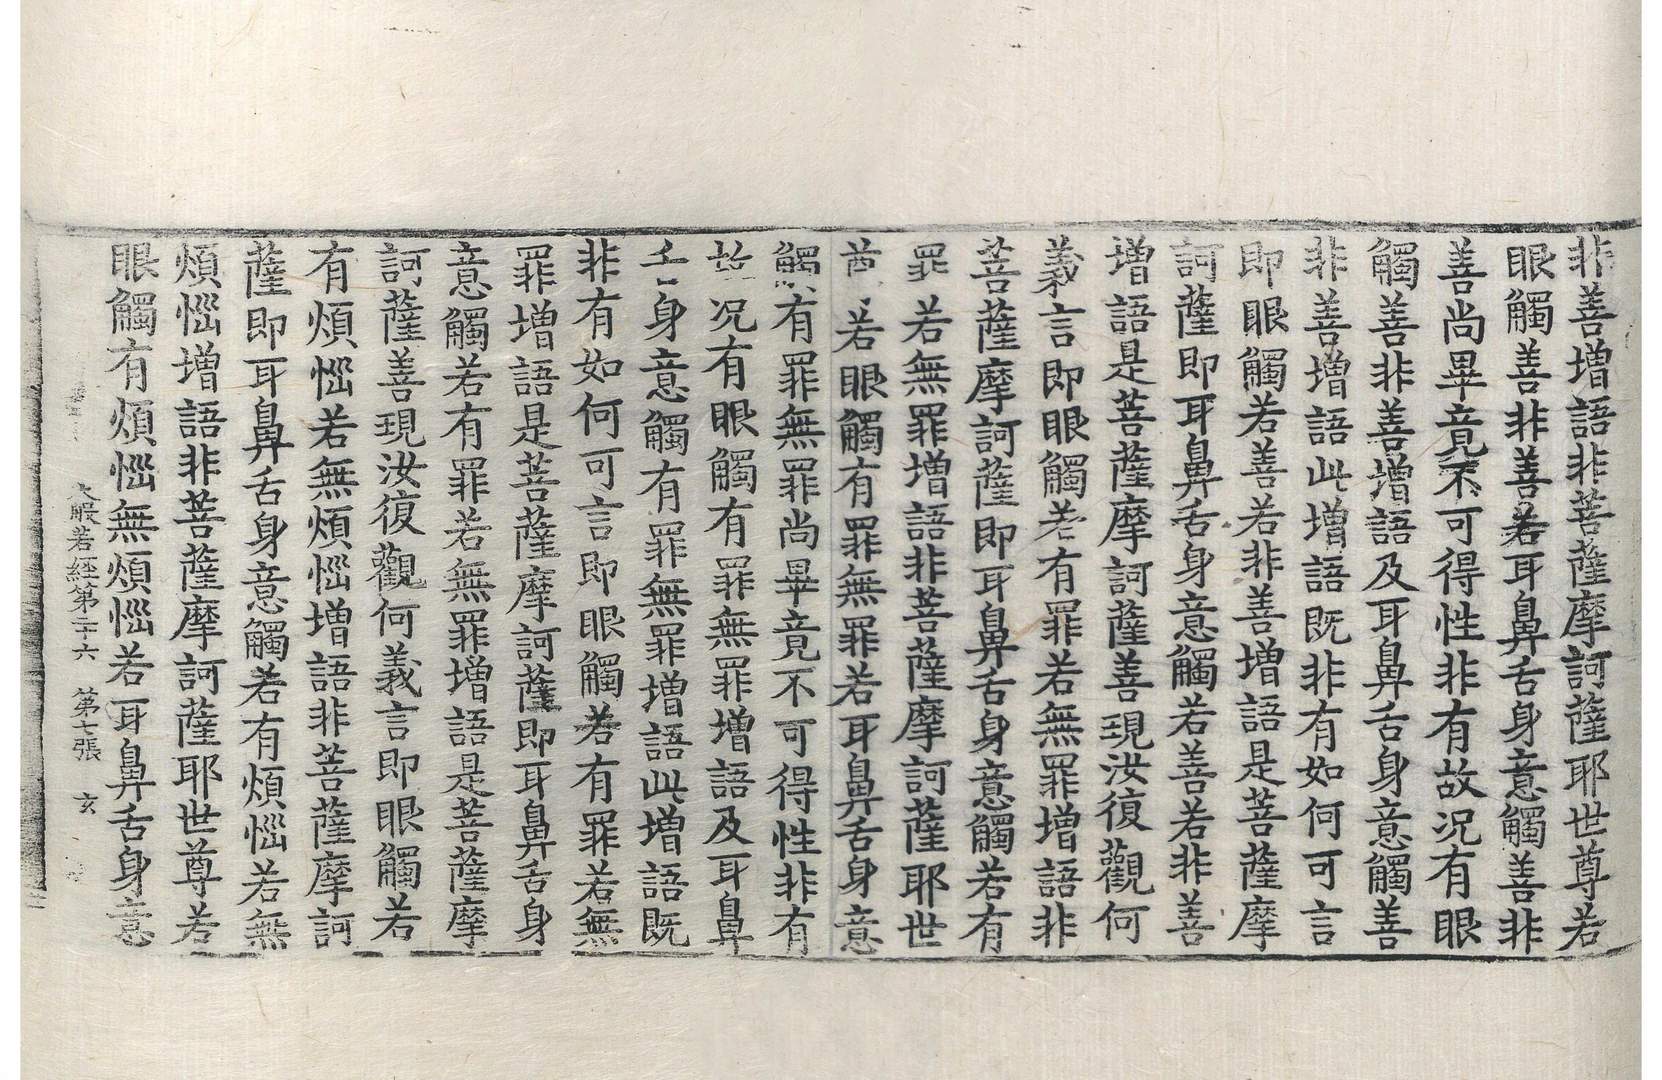 非善增語非菩薩摩訶薩耶世尊若
眼觸善非善若耳鼻舌身意觸善非
善尚畢竟不可得性非有故况有眼
觸善非善增語及耳鼻舌身意觸善
非善增語此增語既非有如何可言
即眼觸若善若非善增語是菩薩摩
訶薩即耳鼻舌身意觸若善若非善
增語是菩薩摩訶薩善現汝復觀何
義言即眼觸若有罪若無罪增語非
菩薩摩訶薩即耳鼻舌身意觸若有
罪若無罪增語非菩薩摩訶薩耶世
尊若眼觸有罪無罪若耳鼻舌身意
觸有罪無罪尚畢竟不可得性非有
故况有眼觸有罪無罪增語及耳鼻
舌身意觸有罪無罪增語此增語既
非有如何可言即眼觸若有罪若無
罪增語是菩薩摩訶薩即耳鼻舌身
意觸若有罪若無罪增語是菩薩摩
訶薩善現汝復觀何義言即眼觸若
有煩惱若無煩惱增語非菩薩摩訶
薩即耳鼻舌身意觸若有煩惱若無
煩惱增語非菩薩摩訶薩耶世尊若
眼觸有煩惱無煩惱若耳鼻舌身意
大般若經第二十六 第七張 玄